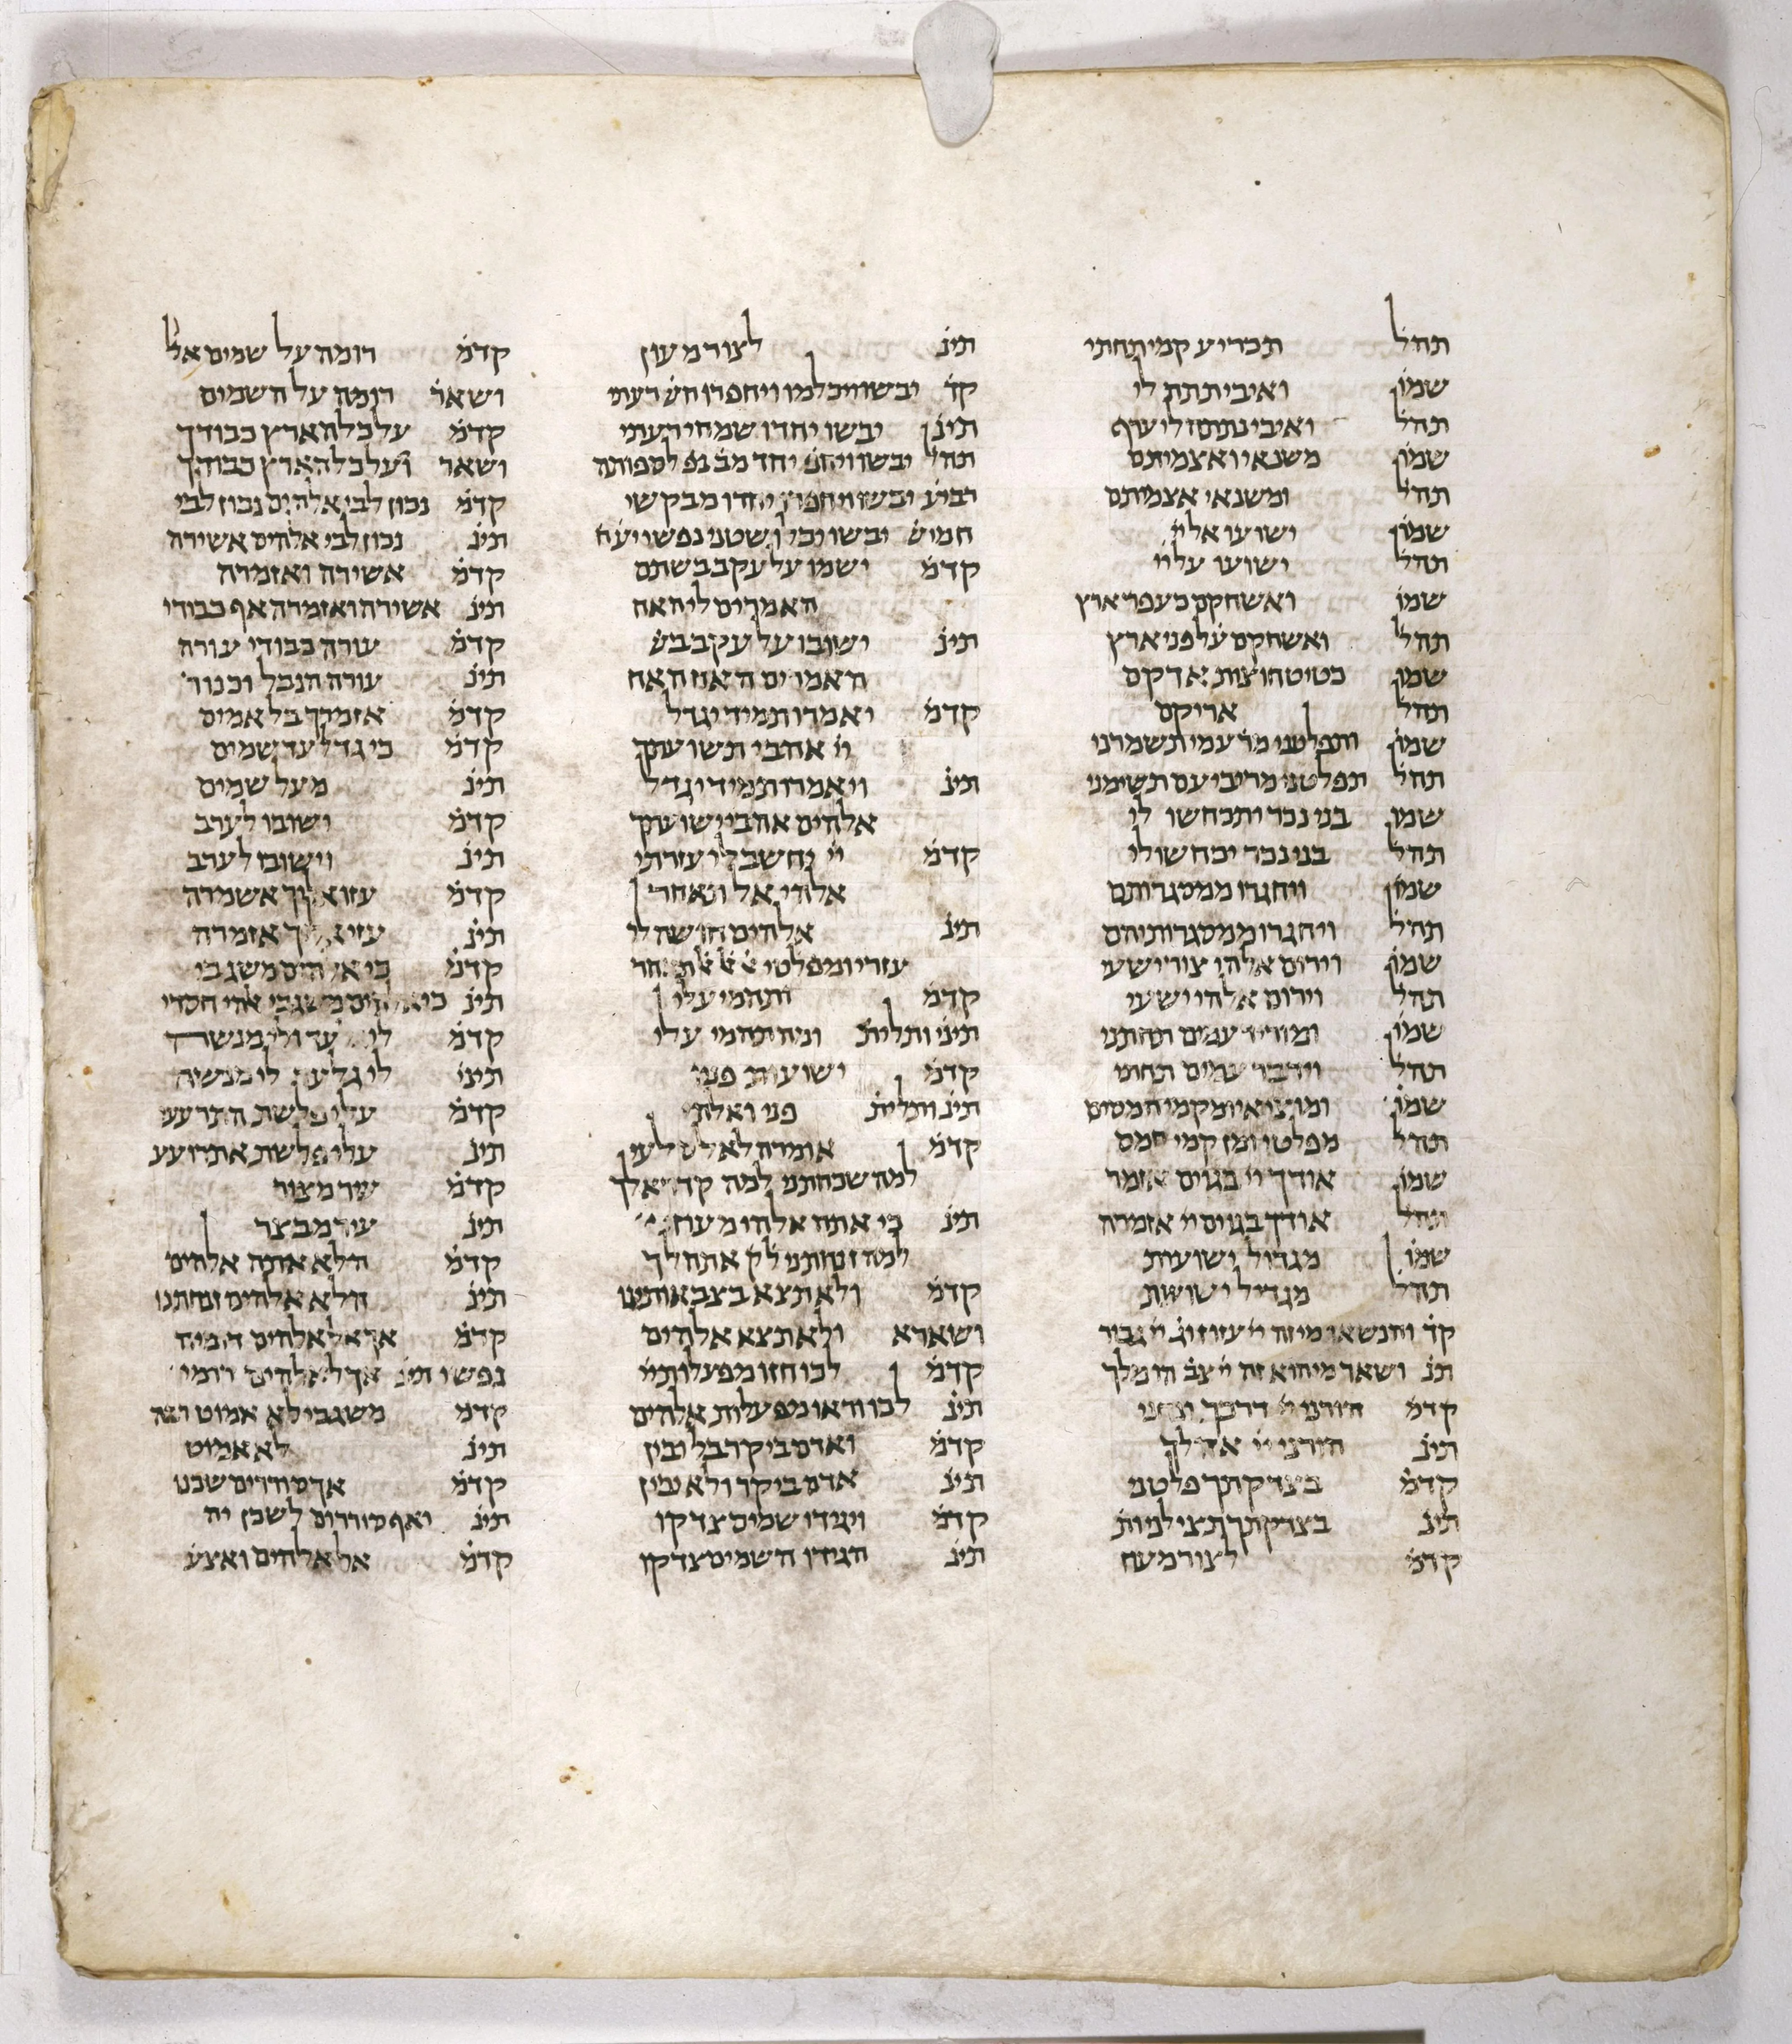 תהל תכריע קמי תחתי
שמו ואיבי תתת לי
תהל ואיבי נתתה לי ערף
שמו משנאי ואצמיתם
תהל ומשנאי אצמיתם
שמו ישועו אל יי
תהל ישועו על יי
שמו ואשחקם כעפר ארץ
תהל ואשחקם על פני ארץ
שמו כטיט חוצות אדקם
תהל אריקם
שמו ותפלטני מר עמי תשמרני
תהל תפלטני מריבי עם תשימני
שמו בני נכר יתכחשו לי
תהל בני נכר יכחשו לי
שמו ויחגרו ממסגרותם
תהל ויחרגו ממסגרותיהם
שמו וירום אלהי צור ישעי
תהל וירום אלהי ישעי
שמו ומוריד עמים תחתני
תהל וידבר עמים תחתי
שמו ומוציאי ומקמי חמסים
תהל מפלטי ומן קמי חמס
שמו אודך יי בגוים אזמר
תהל אודך בגוים יי אזמרה
שמו מגדול ישועות
תהל מגדיל ישועות
קד והנשאו מי זה יי עזוז וג יי גבור
תנ ושאר מי הוא זה יי צב הו מלך
קדמ הורני יי דרכך ונחני
תינ הורני יי אהלך
קדמ בצדקתך פלטני
תינ בצדקתך תצילני ות
קדמ לצור מעוז
תינ לצור מעון
קד יבשו ויכלמו ויחפרו חש רעתי
תינ יבשו יחדו שמחי רעתי
תהל יבשו ויחפ יחד מב נפ לספותה
רביע יבשו ויחפרו יחדו מבקשי
חמיש יבשו יכלו שטני נפשי יעח
קדמ ישמו על עקב בשתם
האמרים לי האח
תינ ישובו על עקב בש
האמרים האח האח
קדמ יאמרו תמיד יגדל
יי אהבי תשועתך
תינ ויאמרו תמיד יגדל
אלהים אהבי ישועתך
קדמ יי יחשב לי עזרתי
אלהי אל תאחר
תינ אלהים חושה לי
עזרי ומפלטי
קדמ ותהמי עלי
תינ ותלית ומה תהמי עלי
קדמ ישועות פניו
תינ ותלית פני ואלהי
קדמ אומרה לאל סלעי
למה שכחתני למה קדר אלך
תינ כי אתה אלהי מעוזי
למה זנחתני למ אתהלך
קדמ ולא תצא בצבאותינו
ושארא ולא תצא אלהים
קדמ לכו חזו מפעלות יי
תינ לכו וראו מפעלות אלהים
קדמ ואדם ביקר בל ילין
תינ אדם ביקר ולא יבין
קדמ ויגידו שמים צדקו
תינ הגידו השמים צדקו
קדמ רומה על שמים אל
ושאר רומה על השמים
קדמ על כל הארץ כבודך
ושאר ועל כל הארץ כבודך
קדמ נכון לבי אלהים נכון לבי
תינ נכון לבי אלהים אשירה
קדמ אשירה ואזמרה
תינ אשירה ואזמרה אף כבודי
קדמ עורה כבודי עורה
תינ עורה הנבל וכנור
קדמ אזמרך בלאמים
קדמ כי גדל עד שמים
תינ מעל שמים
קדמ ישובו לערב
תינ וישובו לערב
קדמ עזו אליך אשמרה
תינ עזי אליך אזמרה
קדמ כי אלהים משגבי
תינ כי אלהים משגבי אלהי חסדי
קדמ לי גלעד ולי מנשה
תינ לי גלעד לי מנשה
קדמ עלי פלשת התרעעי
תינ עלי פלשת אתרועע
קדמ עיר מצור
תינ עיר מבצר
קדמ הלא אתה אלהים
תינ הלא אלהים זנחתנו
קדמ אך אל אלהים דומיה
נפשי תינ אך לאלהים דומי
קדמ משגבי לא אמוט רבה
תינ לא אמוט
קדמ אך סוררים שכנו
תינ ואף סוררים לשכן יה
קדמ אל אלהים ואצע